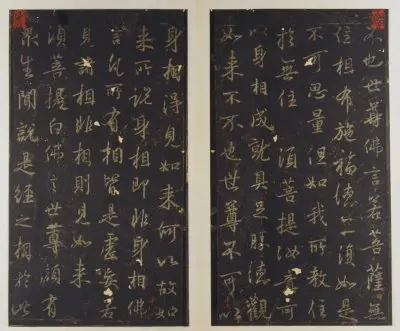 不也世尊佛言若菩薩無
住相布施福德亦須如是
不可思量但如我所教住
於無住須菩提汝意可
以身相成就具足勝德觀
如来不不也世尊不可以
身相得見如来何以故如
来所說身相即非身相佛
言凡所有相皆是虛妄若
見諸相非相則見如来
須菩提白佛言世尊頗有
眾生聞說是經之相於此